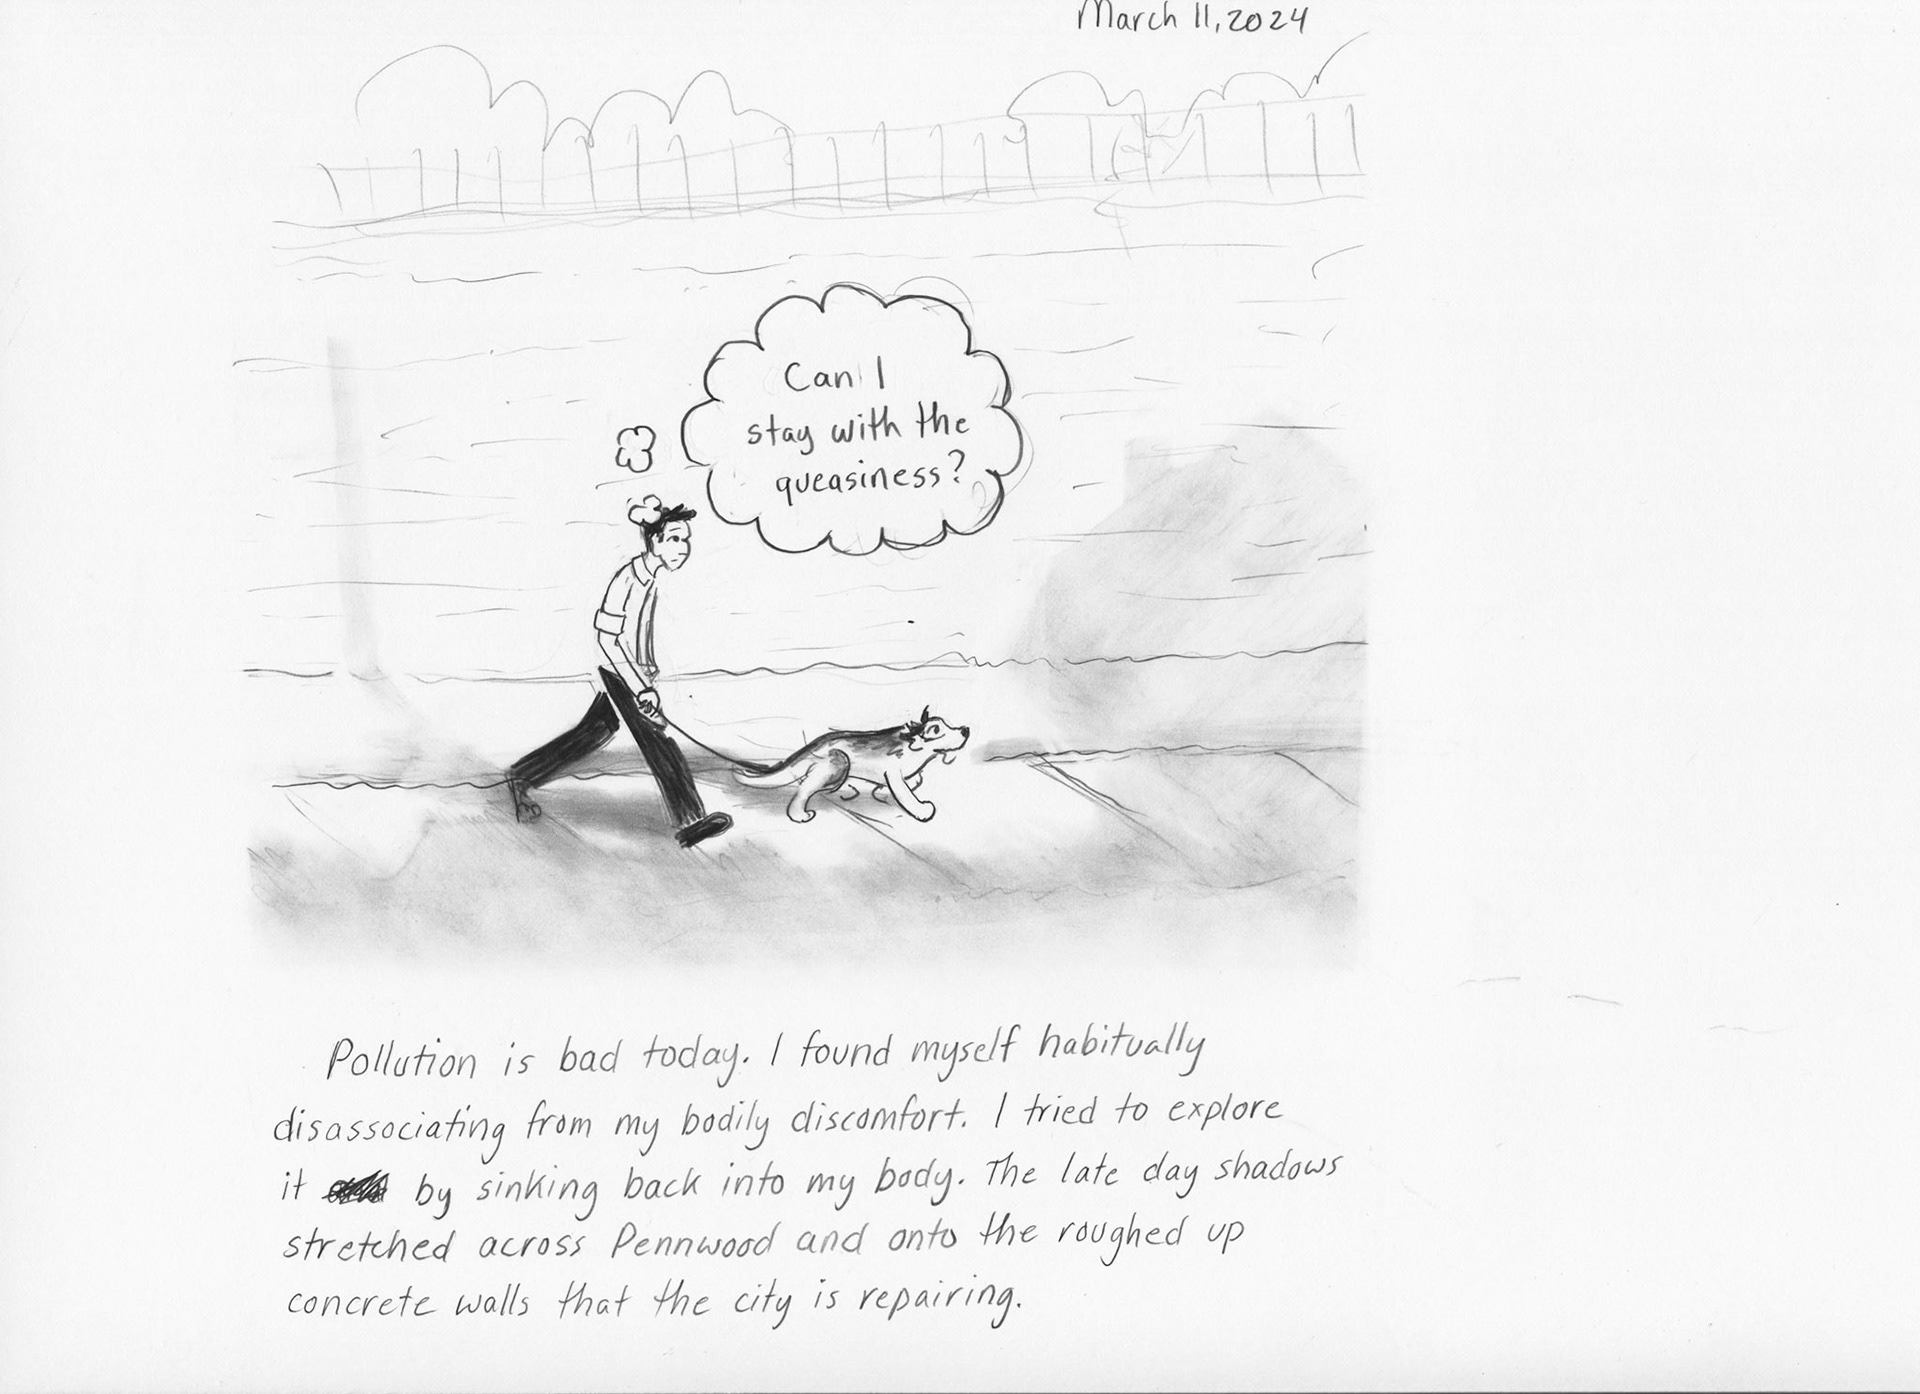 March 11, 2024
Can I
stay with the
queasiness?
Pollution is bad today. I found myself habitually
disassociating from my bodily discomfort. I tried to explore
it by sinking back into my body. The late day shadows
stretched across Pennwood and onto the roughed up
concrete walls that the city is repairing.